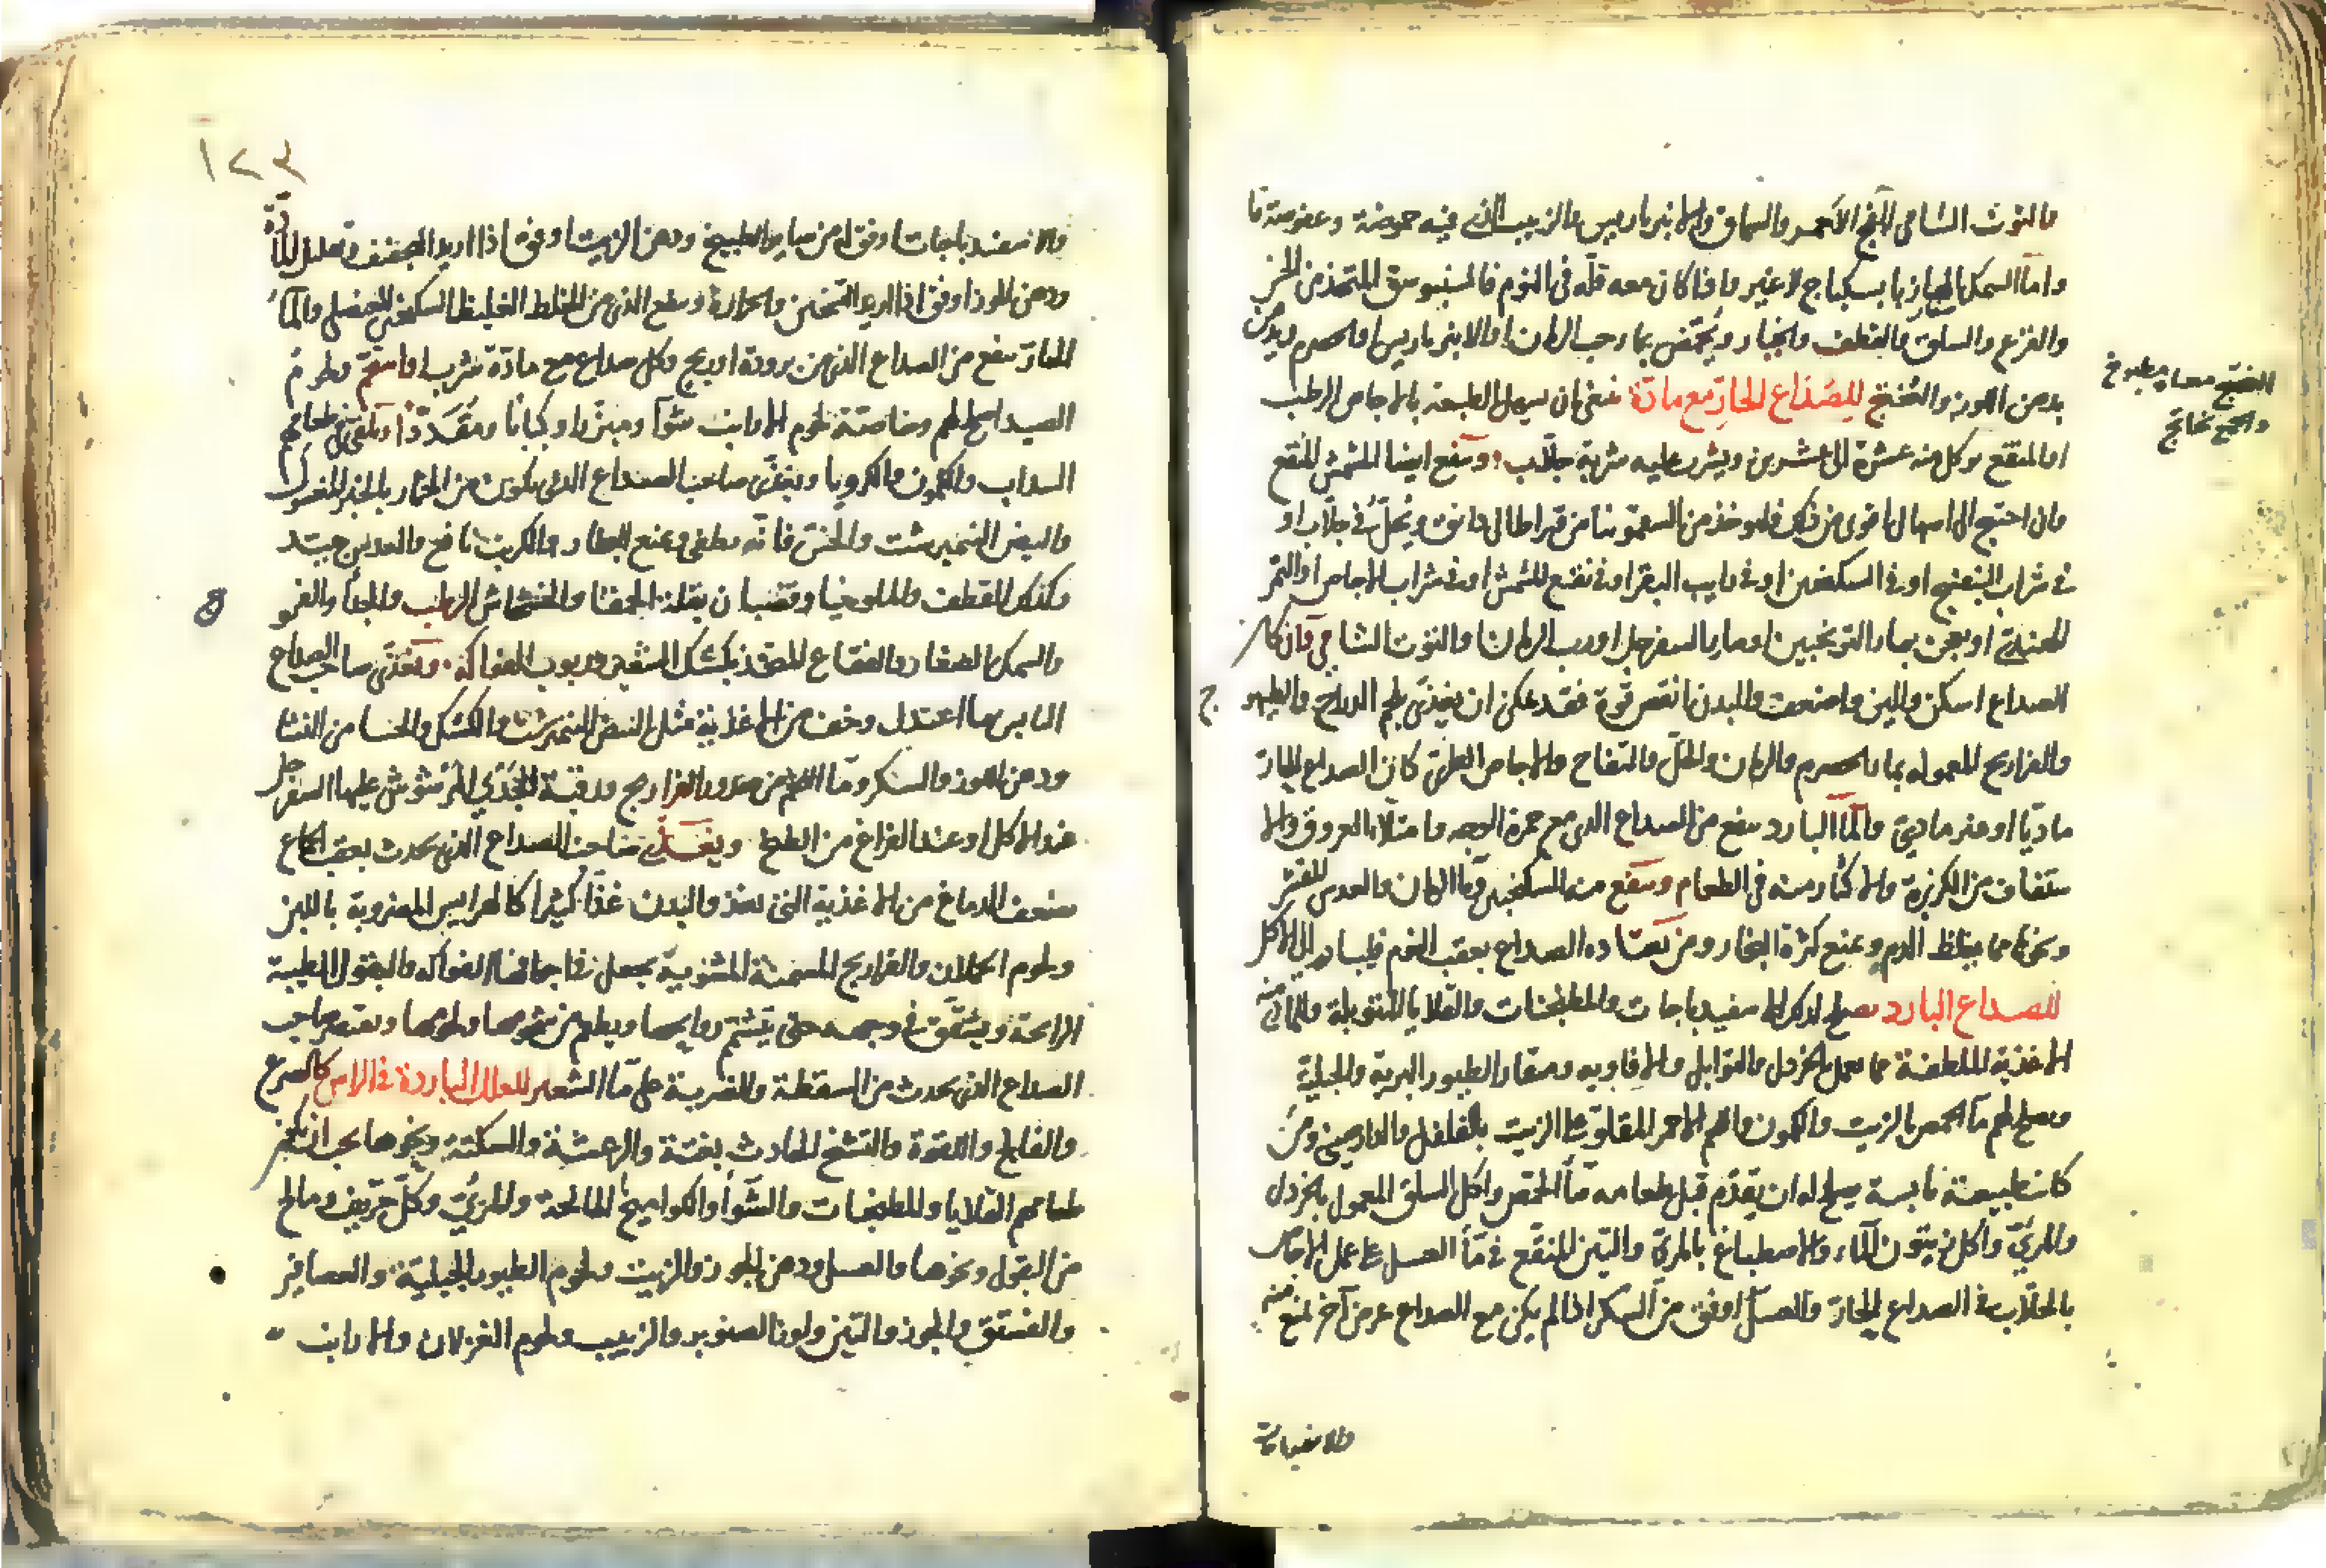 والتوث الشامى الفج الاحمر والسماق والانبرباريس والزبيب الذى فيه حموضة وعفوصة ما
واما السمك الهازبا بسكباج لا غير واذا كان معه قلة فى النوم فالسنبوسق المتخذ من الخس
والقرع والسلق والقطف والخيار ويحمض بما وحب الرمان او الانبرباريس او الحصرم
بدهن اللوز والفختج للصداع الحار مع مادة ينبغى ان يسهل الطبيعة بالاجاص الرطب
او المنقع يوكل منه عشرة الى عشرين ويشرب عليه شربة جلاب وينفع ايضا المشمش المنقع
وان احتيج الى اسهال اقوى من ذلك فليوخذ من السقمونيا من قيراط الى دانق ويحل فى جلاب او
فى شراب البنفسج او فى السكنجبين او فى رايب البقر او فى نقيع المشمش او فى شراب الاجاص او التمر
الهندى او يعجن بماء الترنجبين او بماء السفرجل او برب الرمان والتوث الشامى فان كان
الصداع اسكن والين واضعف والبدن انقص قوة فقد يمكن ان يغذى بلحم الدراج والطيهوج
والفراريج المعموله بماء الحصرم والرمان والخل والتفاح والاجاص الطرى كان الصداع الحار
ماديا او غير مادى والماء البارد ينفع من الصداع الذى مع حمرة الوجه وامتلا العروق والا
ستفاف من الكزبرة والاكثار منه فى الطعام وينفع منه السكنجبين وماء الرمان والعدس المقشر
ونحوها مما يغلظ الدم ويمنع كثرة البخار ومن يعتاده الصداع بعقب النوم فليبادر الى الاكل
للصداع البارد يصلح لذلك الاسفيدباجات والمطجنات والقلايا المتوبلة
الاغذية الملطفة مما يعمل بالخردل والتوابل والافاويه وصغار الطيور البرية والجبلية
ويصلح لهم ماء الحمص بالزيت والكمون واللحم الاحمر المقلو بالزيت بالفلفل والدارصينى ومن
كانت طبيعته يابسة يصلح له ان يقدم قبل طعامه ماء الحمص واكل السلق المعمول بالخردل
والمرى واكل زيتون الماء والاصطباغ بالمرى والتين المنقع فى ماء العسل على عمل الاجاص
بالجلاب فى الصداع الحار والعسل اوفق من السكر اذا لم يكن مع الصداع عرض آخر يمنع منه
والاسفيدباجات
الفختج معناه مطبوخ
والجمع فخاتج
١٢٣
والاسفيدباجات اوفق له من سائر الطبيخ ودهن الزيت اوفق اذا اريد التجفيف وتحليل المادة
ودهن اللوز اوفق اذا اريد التسخين والحرارة وينفع الذى من الخلط الغليظ السكنجبين العنصلى والماء
الحار ينفع من الصداع الذى من برودة او ريح وكل صداع مع مادة شرب او اسقم ولحوم
الصيد اصلح لهم وخاصة لحوم الارانب شواء ومبزرا وكبابا ومقددا ويلقى فى طعامهم
السداب والكمون والكرويا ويغذى صاحب الصداع الذى يكون من الخمار بالخبز المغسول
والبيض النيمبرشت والخس فانه يطفى ويمنع البخار والكرنب نافع والعدس جيد
وكذلك القطف والملوخيا وقضبان بقلة الحمقا والخشخاش الرطب
والسمك الصغار والفقاع المتخذ بكشك الشعير وربوب الفواكه ويغذى صاحب الصداع
اليابس بما اعتدل وخف من الاغذية مثل البيض النيمبرشت والكشك والحسا من النشا
ودهن اللوز والسكر وماء اللحم من صدور الفراريج ورقبة الجدى المرشوش عليها السفرجل
عند الاكل او عند الفراغ من الطبخ ويغذى صاحب الصداع الذى يحدث بعقب الجماع
بضعف الدماغ من الاغذية التى تغذو البدن غذاء كثيرا كالهرايس المضروبة باللبن
ولحوم الحملان والفراريج المسمنة المشوية يجعل فى اجوافها الفواكه والبقول الطيبة
الرائحة ويشقق فى وجهه حتى يشتم روايحها ويطعم من شحومها ولحومها ويقتصر صاحب
الصداع الذى يحدث من السقطة والضربة على ماء الشعير للعلل الباردة فى الراس كالصرع
والفالج واللقوة والتشنج الحادث بغتة والرعشة والسكتة ونحوها يجب ان يكون
طعامهم القلايا والمطجنات والشواء والكواميخ المالحة والمرى وكل حريف ومالح
من البقول ونحوها والعسل ودهن الجوز والزيت ولحوم الطيور الجبلية والعصافير
والفستق والجوز والتين ولوز الصنوبر والزبيب ولحوم الغزلان والارانب